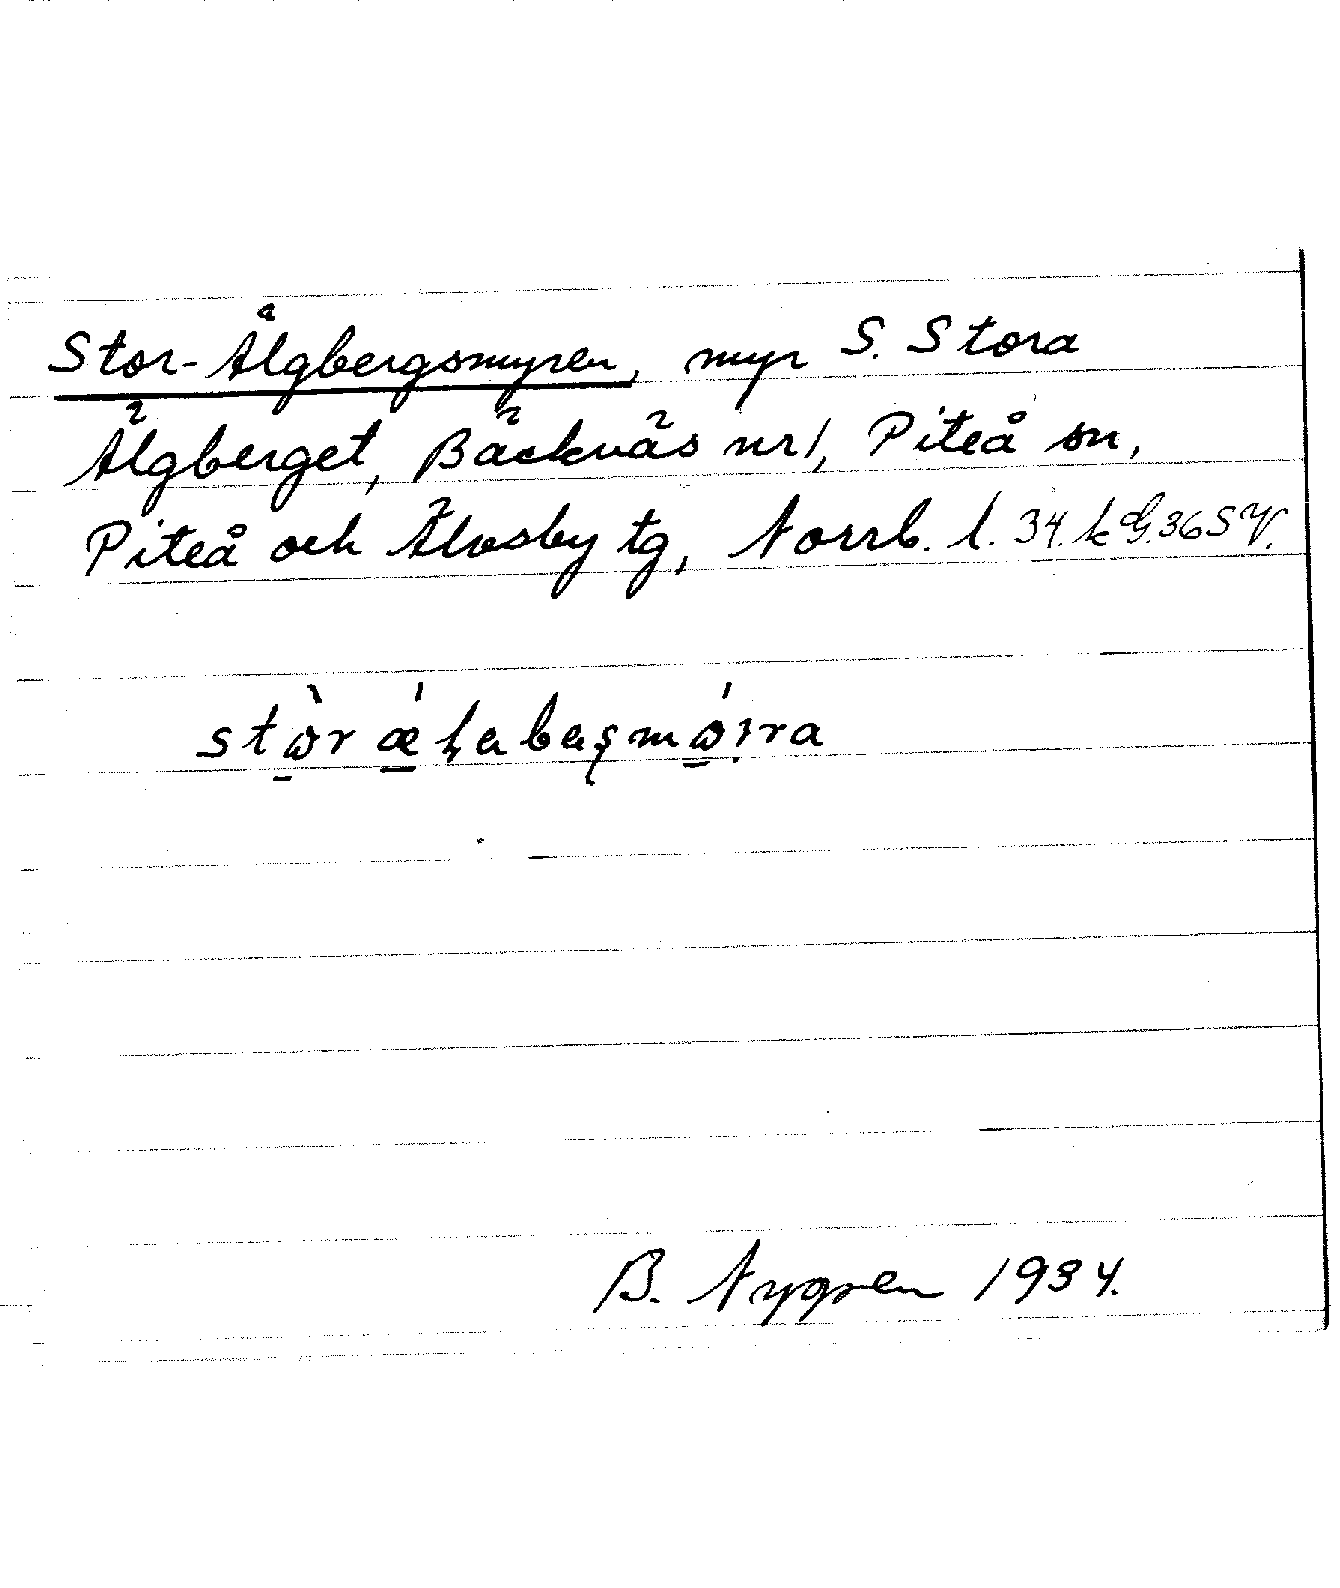 Stor-Älgbergsmyren, myr S. Stora
Älgberget, Bäcknäs nr 1, Piteå sn,
Piteå och Älvsby tg, Norrb. l. 34. k G. 36 SV.
B. Nygren 1934.